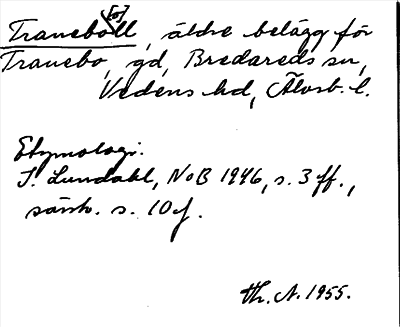 [o]
Traneboll, äldre belägg för
Tranebo, gd, Bredareds sn,
Vedens hd, Älvsb. l.
Etymologi:
I. Lundahl, NoB 1946, s. 3 ff.,
särsk. s. 10 f.
1955.